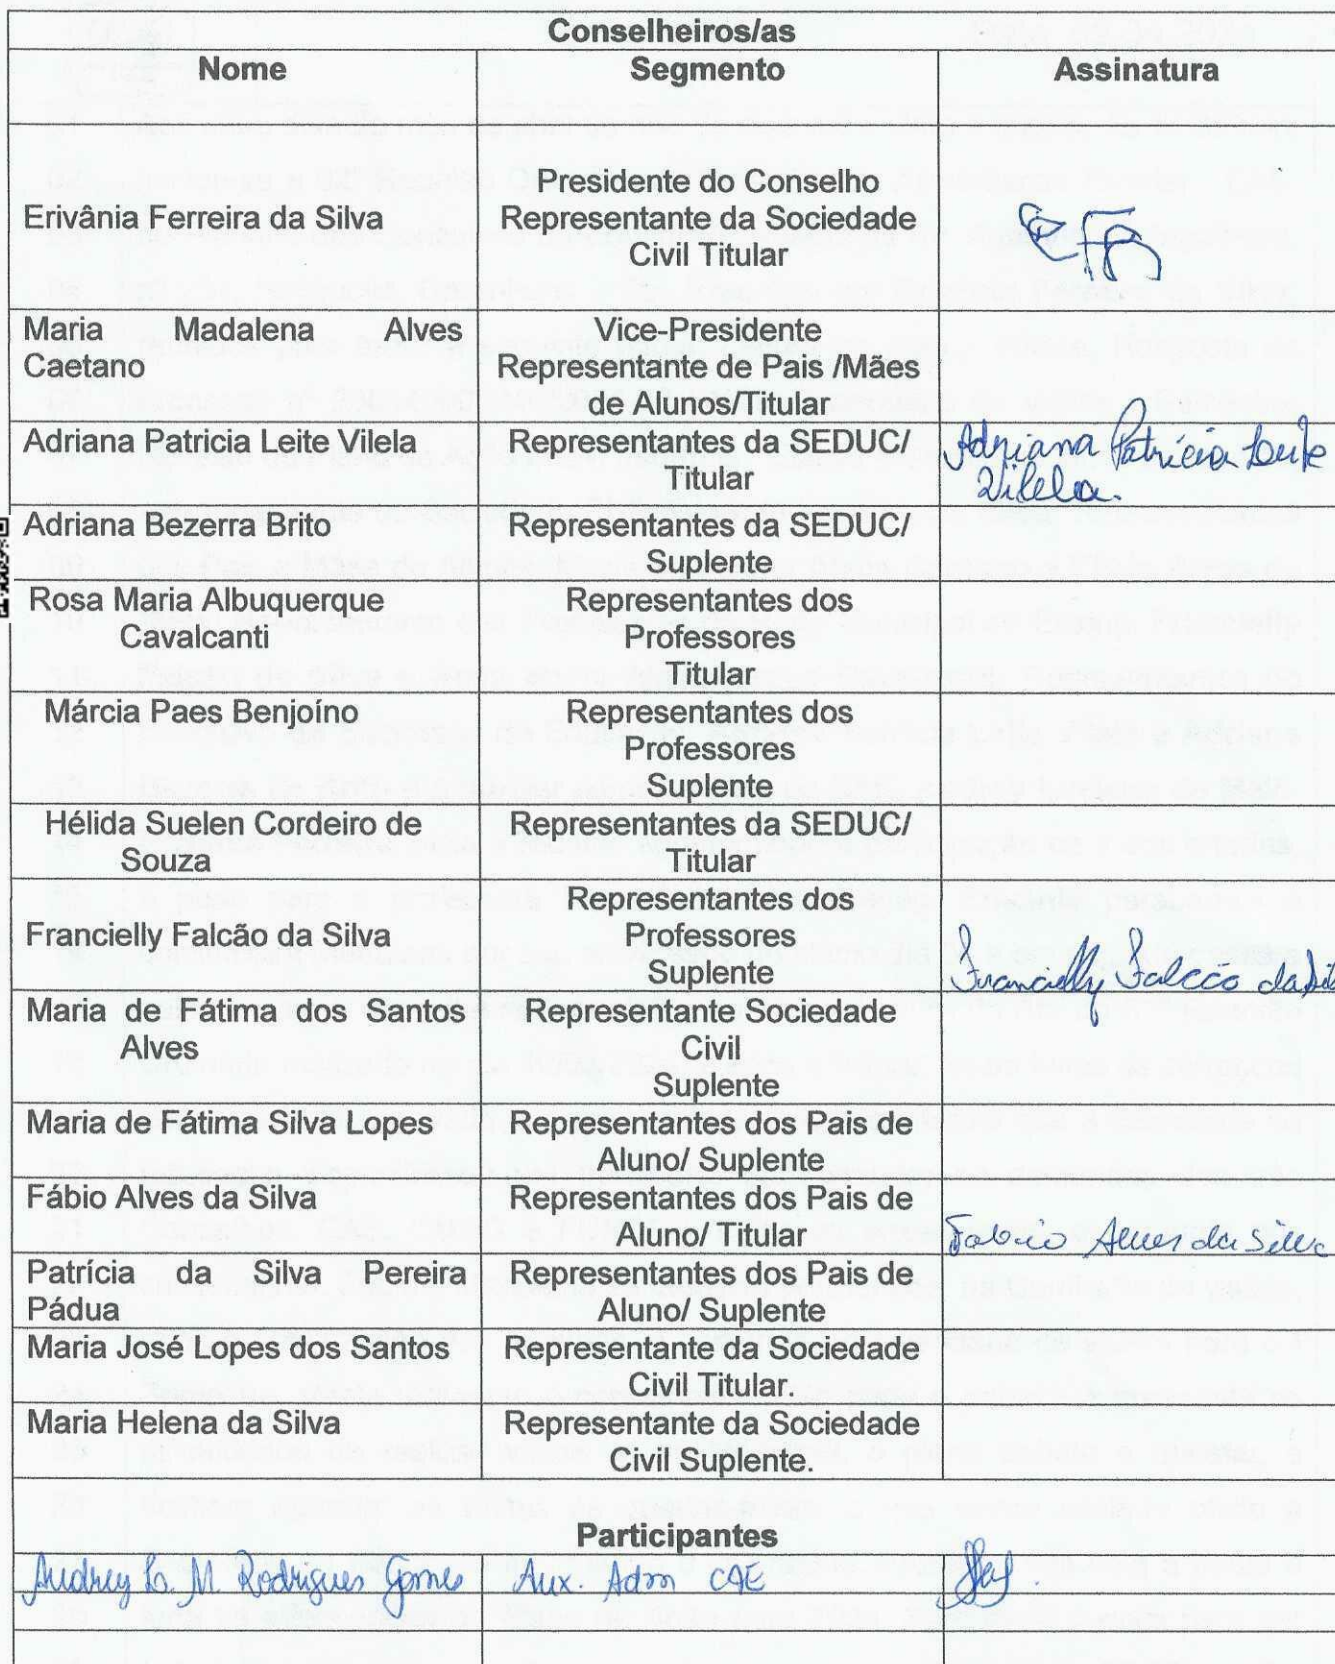 Conselheiros/as
Nome Segmento Assinatura
Presidente do Conselho
Erivânia Ferreira da Silva Representante da Sociedade
Civil Titular
Maria Madalena Alves Vice-Presidente
Caetano Representante de Pais /Mães
de Alunos/Titular
Adriana Patricia Leite Vilela Representantes da SEDUC/ Adriana Patrícia Leite
Titular Vilela.
Adriana Bezerra Brito Representantes da SEDUC/
Suplente
Rosa Maria Albuquerque Representantes dos
Cavalcanti Professores
Titular
Márcia Paes Benjoíno Representantes dos
Professores
Suplente
Hélida Suelen Cordeiro de Representantes da SEDUC/
Souza Titular
Representantes dos
Francielly Falcão da Silva Professores
Suplente Francielly Falcão da Sil
Maria de Fátima dos Santos Representante Sociedade
Alves Civil
Suplente
Maria de Fátima Silva Lopes Representantes dos Pais de
Aluno/ Suplente
Fábio Alves da Silva Representantes dos Pais de
Aluno/ Titular Fabio Alves da Silva
Patrícia da Silva Pereira Representantes dos Pais de
Pádua Aluno/ Suplente
Maria José Lopes dos Santos Representante da Sociedade
Civil Titular.
Maria Helena da Silva Representante da Sociedade
Civil Suplente.
Participantes
Audrey M. Rodrigues Gomes Aux. Adm CAE